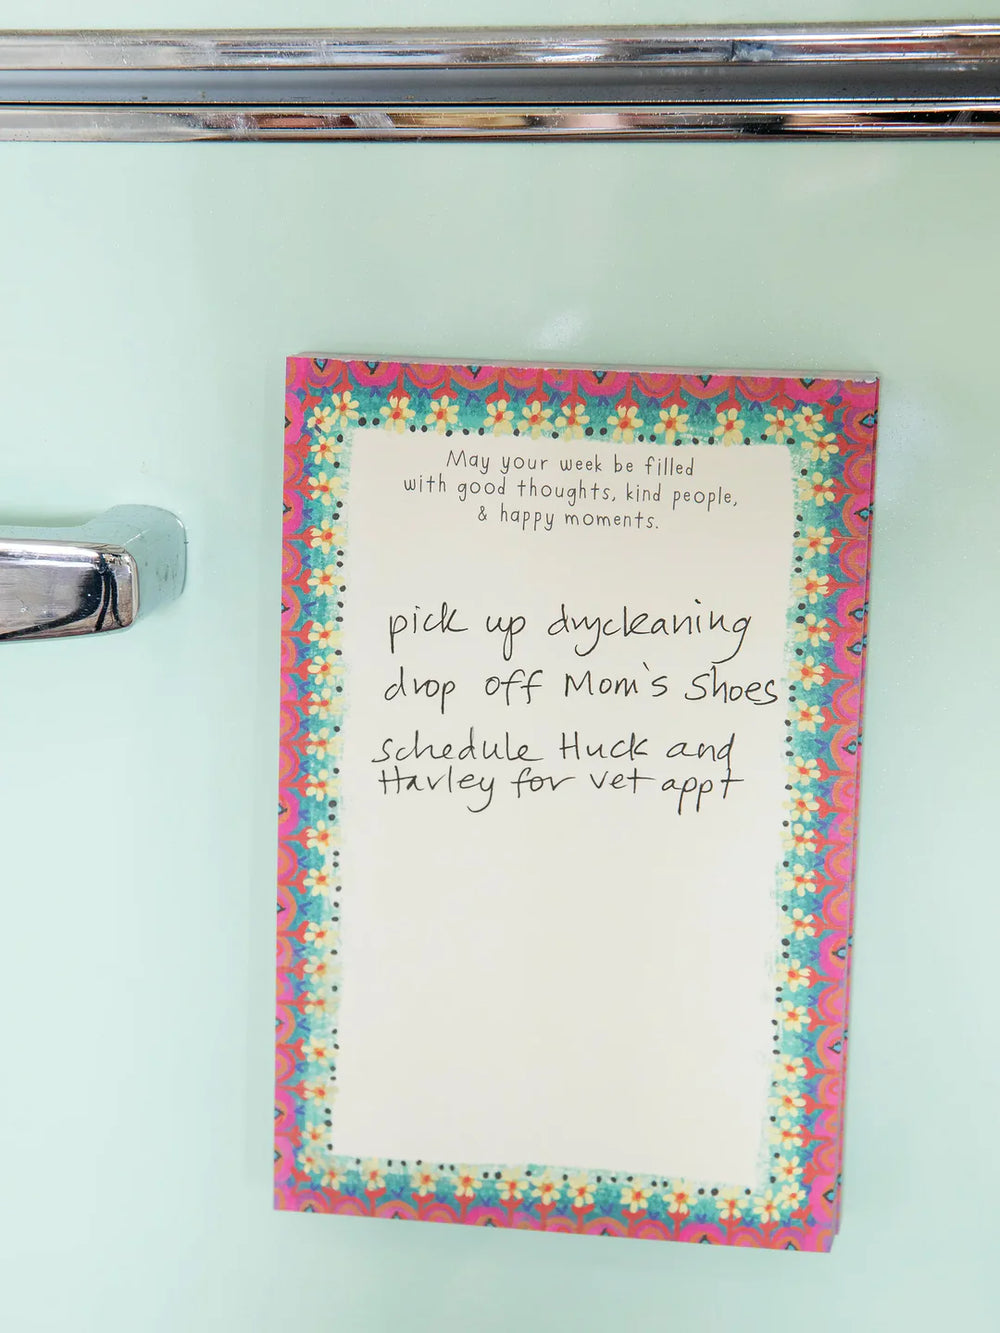 May your week be filled
with good thoughts, kind people,
& happy moments.
pick up drycleaning
drop off Mom's Shoes
schedule Huck and
Harley for vet appt